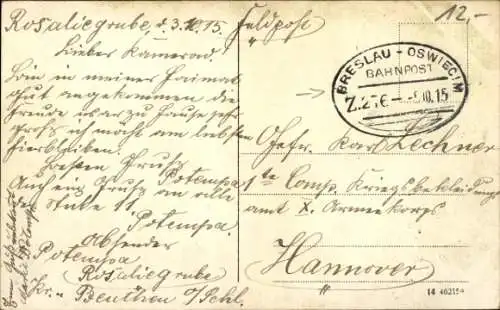 Rosaliegrube, d. 3.10.15.
Lieber Kamerad.
Bin in meiner Heimat
gut angekommen die
Freude war zu Hause sehr
groß ich möcht am liebsten
hierbleiben.
Besten Gruß
Potempa
Auch ein Gruß an alle
der Stube 11.
Potempa.
Absender
Potempa
Rosaliegrube
Kr. Beuthen O/Schl.
Feldpost
12,-
BRESLAU - OSWIECIM
BAHNPOST
Z.276 - -5.10.15
Gefr. Karl Lechner
1te Comp. Kriegsbekleidungs
amt X. Armeekorps
Hannover
14 40215